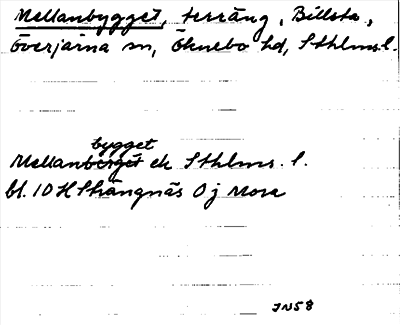 Mellanbygget, terräng, Billsta,
Överjärna sn, Öknebo hd, Sthlms l.
bygget
Mellanberget ek Sthlms l.
bl. 10 H Strängnäs 0 j Mora
JN58